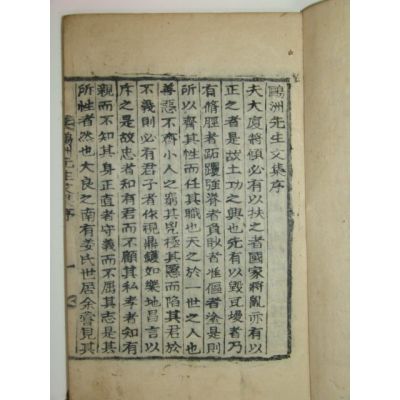 鷗洲先生文集序
夫大廈將傾必有以扶之者國家將亂亦有以
正之者是故土功之興也先有以毀瓦墁者乃
有脩脛者跖躩强脊者負者准傴者塗是則
所以齊其性而任其職也天之於一世之人也
善惡不齊小人之窮其兇極其慝而陷其君於
不義則必有君子者視鼎鑊如樂地昌言以
斥之是故忠者知有君而不顧其私孝者知有
親而不知其身正直者守義而不屈其志是其
所性者然也大良之南有姜氏世居余嘗見其
鷗洲先生文集序 一